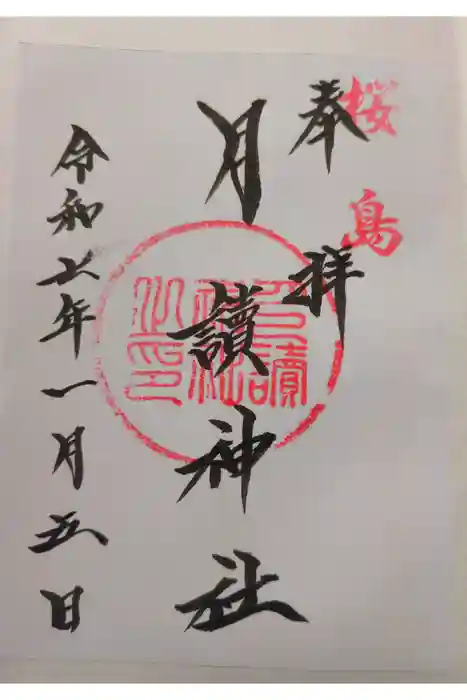 桜島
奉拝
月讀神社
月讀
神社
之印
令和七年一月五日